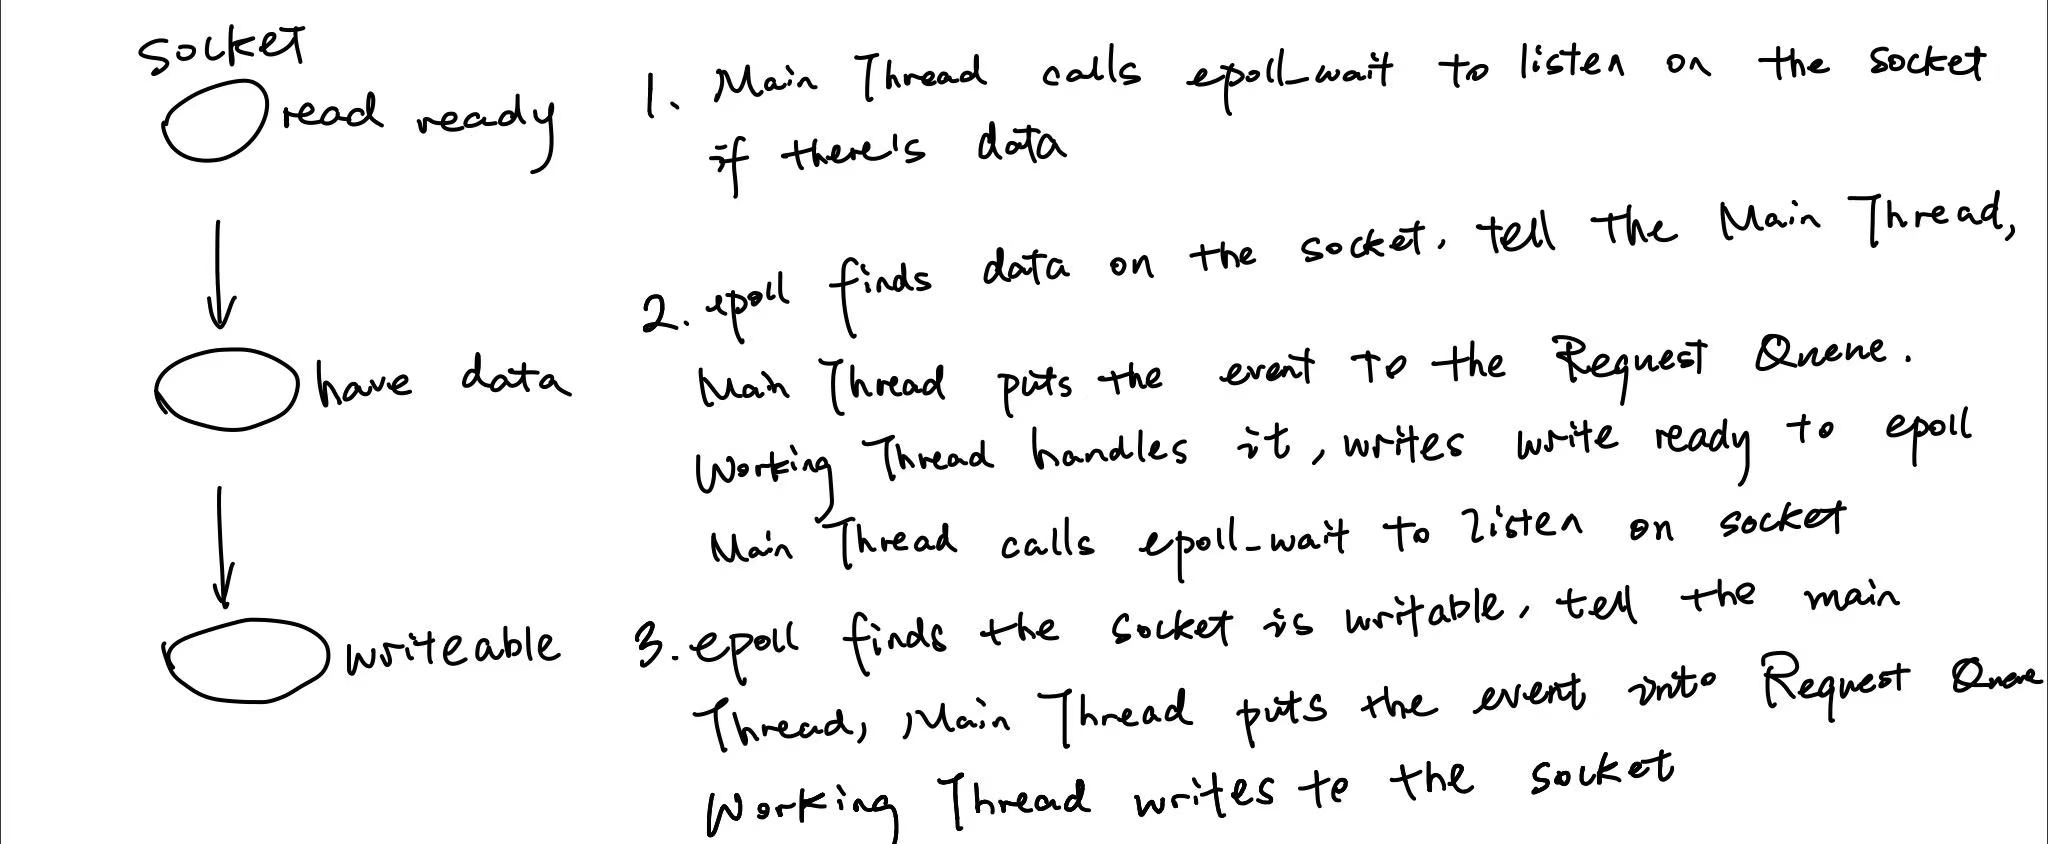 socket
read ready
1. Main Thread calls epoll_wait to listen on the socket
if there's data
2. epoll finds data on the socket. tell the Main Thread,
have data
Main Thread puts the event to the Request Queue.
Working Thread handles it, writes write ready to epoll
Main Thread calls epoll_wait to listen on socket
writeable
3. epoll finds the socket is writable, tell the main
Thread, Main Thread puts the event into Request Queue
Working Thread writes to the socket